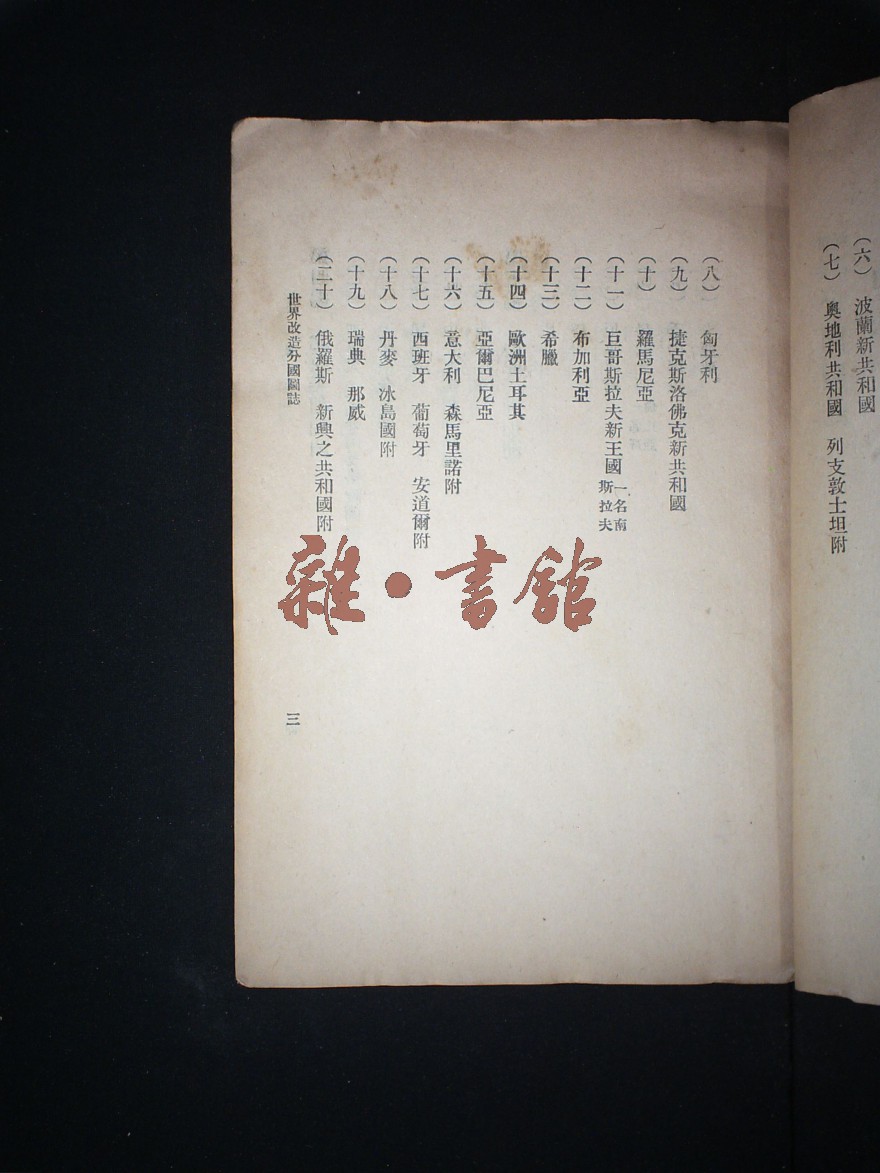 （六）　波蘭新共和國
（七）　奧地利共和國　列支敦士坦附
（八）　匈牙利
（九）　捷克斯洛佛克新共和國
（十）　羅馬尼亞
（十一）　巨哥斯拉夫新王國一名南斯拉夫
（十二）　布加利亞
（十三）　希臘
（十四）　歐洲土耳其
（十五）　亞爾巴尼亞
（十六）　意大利　森馬里諾附
（十七）　西班牙　葡萄牙　安道爾附
（十八）　丹麥　冰島國附
（十九）　瑞典　那威
（二十）　俄羅斯　新興之共和國附
世界改造分國圖誌
三
雜·書館